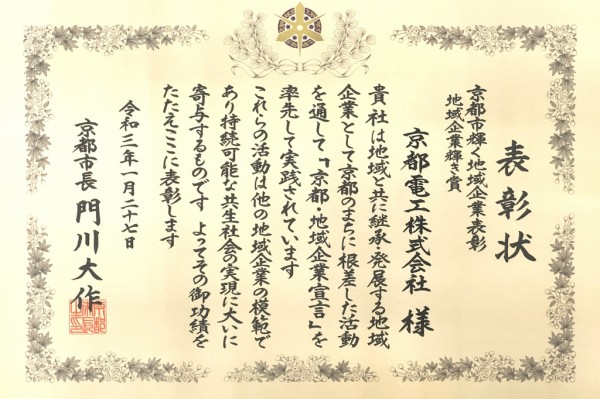 表彰状
京都市輝く地域企業表彰
地域企業輝き賞
京都電工株式会社 様
貴社は地域と共に継承・発展する地域
企業として京都のまちに根差した活動
を通して「京都・地域企業宣言」を
率先して実践されています
これらの活動は他の地域企業の模範で
あり持続可能な共生社会の実現に大いに
寄与するものです よってその御功績を
たたえここに表彰します
令和三年一月二十七日
京都市長 門川大作